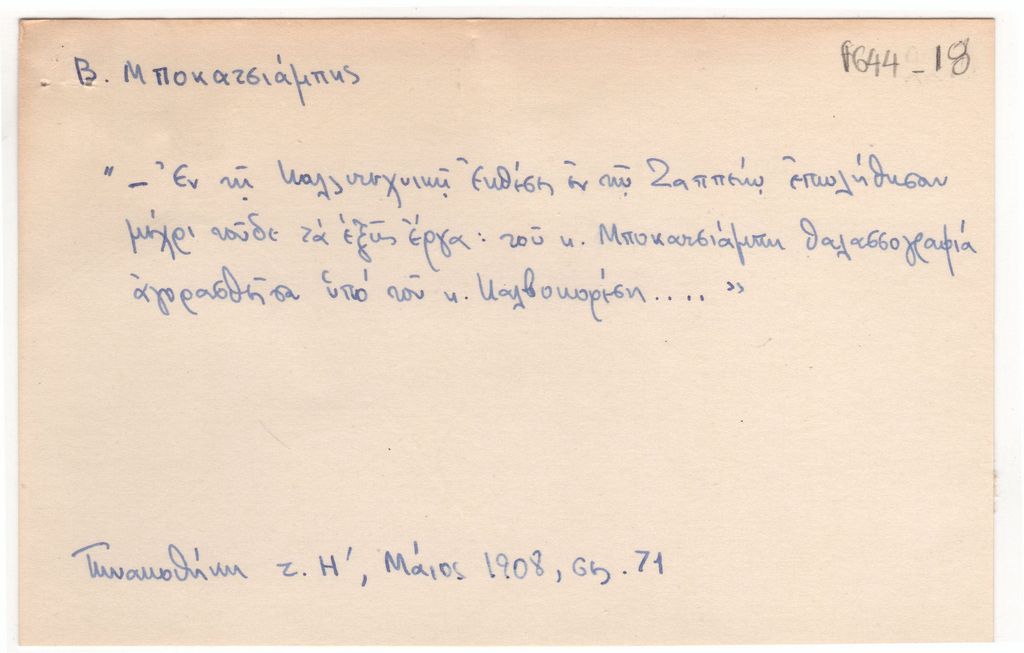 Β. Μποκατσιάμπης
1644-18
"- Ἐν τῇ Καλλιτεχνικῇ Ἐκθέσει ἐν τῷ Ζαππείῳ ἐπωλήθησαν
μέχρι τοῦδε τὰ ἑξῆς ἔργα: τοῦ κ. Μποκατσιάμπη θαλασσογραφία
ἀγορασθεῖσα ὑπό τοῦ κ. Καλβοκορέση .... »
Πινακοθήκη τ. Η', Μάιος 1908, σελ. 71